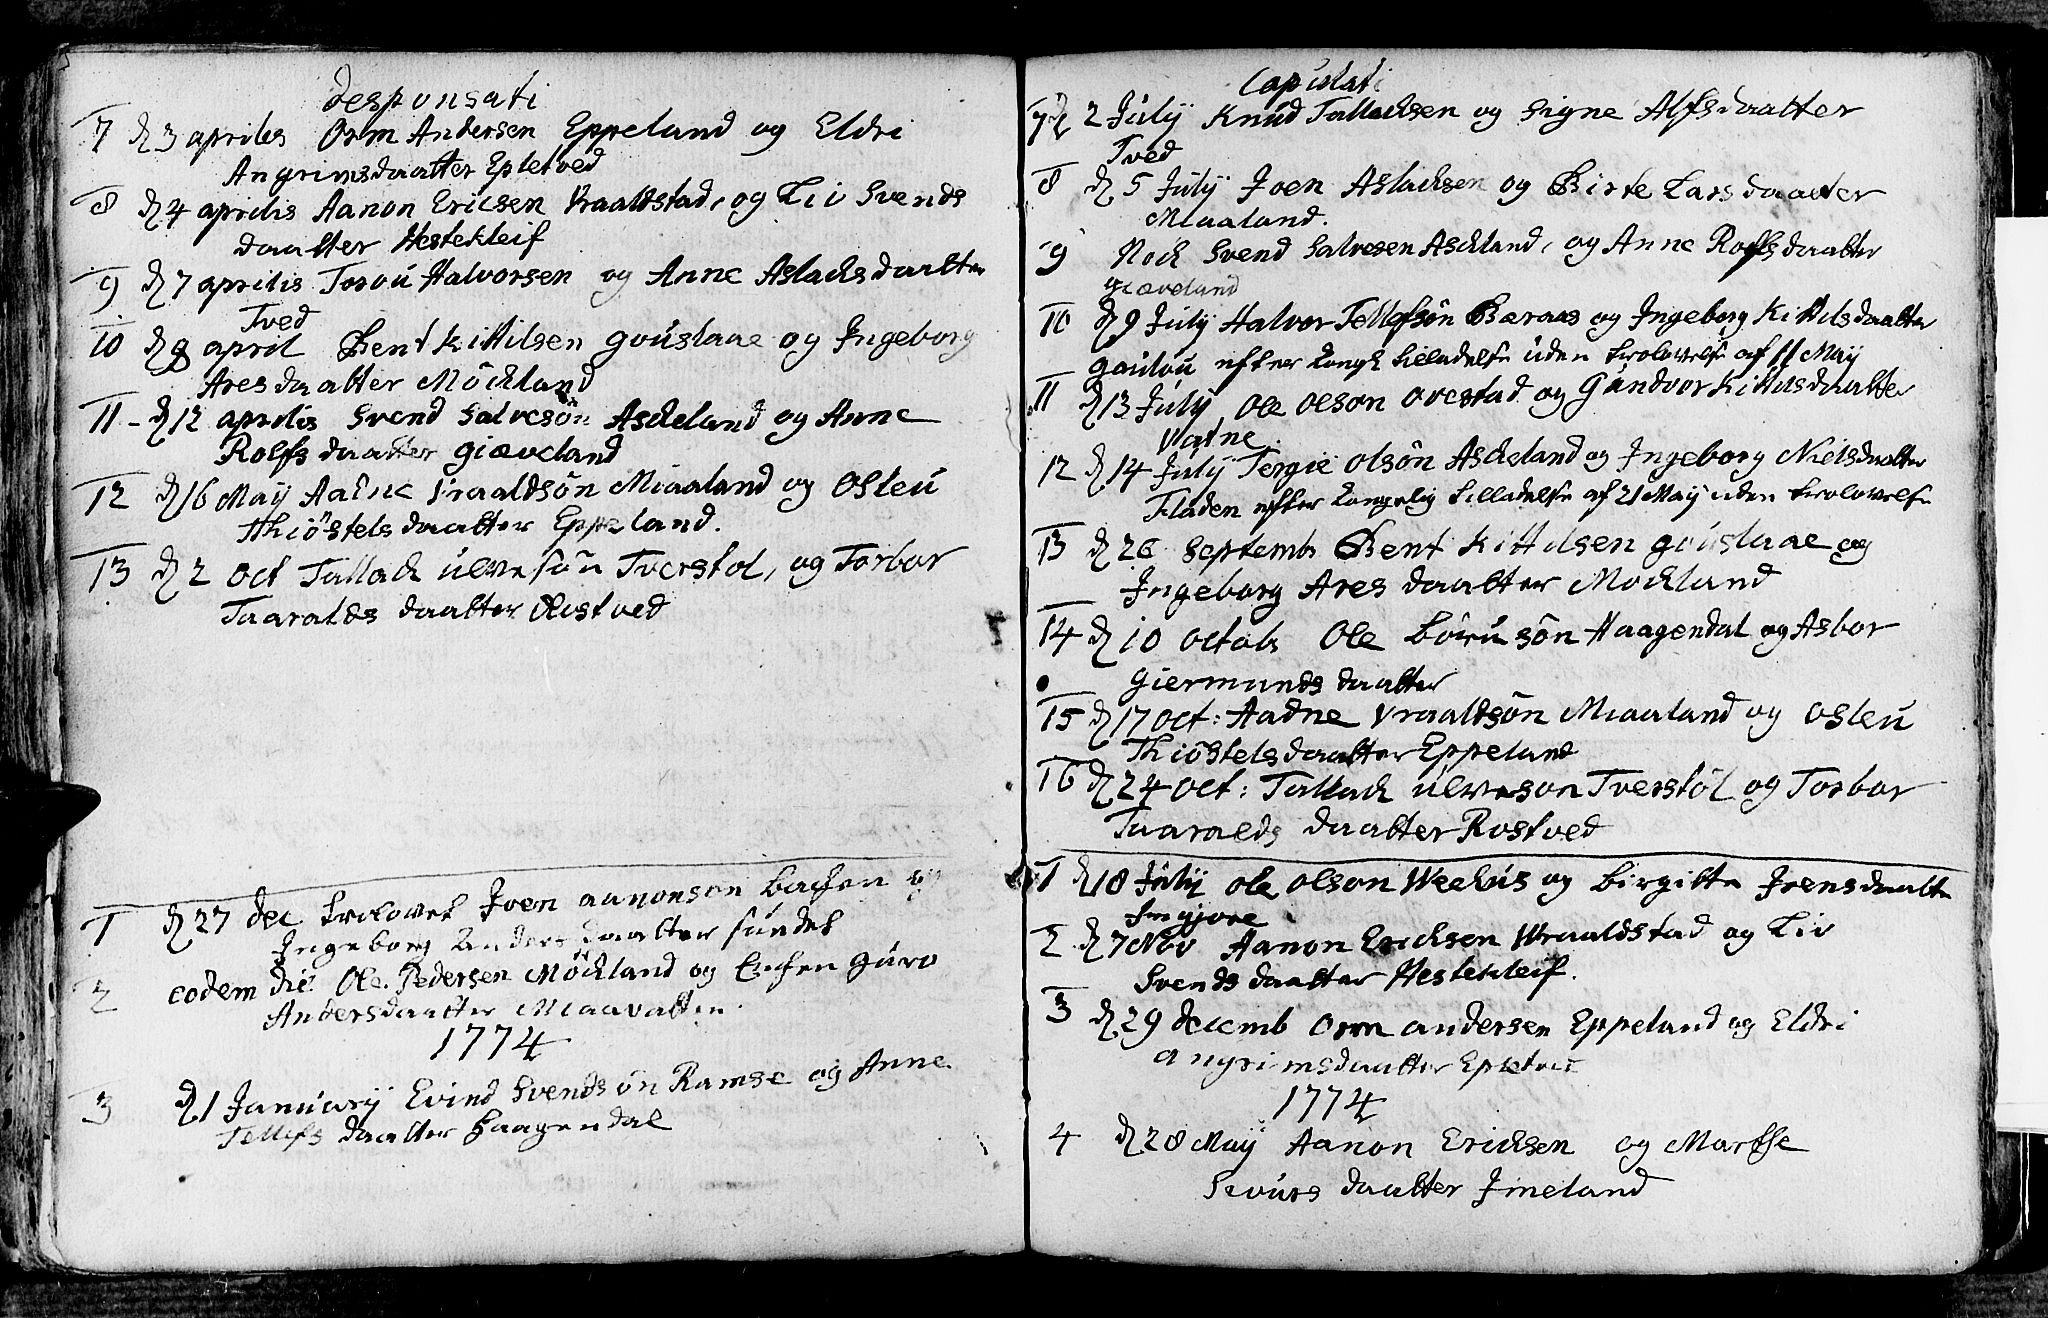 desponsati
7 d 3 aprilis Orm Andersen Eppeland og Eldri
Angrimsdaatter Epletved
8 d 4 aprilis Aanon Ericsen Vraaldstad, og Liv Svends
daatter Hestekleif
9 d 7 aprilis Torou Halvorsen og Anne Aslachsdaatter
Tved
10 d 8 april Bent Kittilsen gouslaae og Ingeborg
Aresdaatter Möckland
11 - d 12 aprilis Svend Salvesön Askeland og Anne
Rolfsdaatter giæveland
12 d 16 Maÿ Aadne Vraaldsön Miaaland og Osleu
Thiöstelsdaatter Eppeland.
13 d 2 Oct Tallack ulvesön Tverstöl, og Torbor
Taaralds daatter Rostved
1 d 27 dec trolovet Joen aanonsen Bachen og
Ingeborg Anders daatter sundet
2 eodem die Ole Pedersen Möckland og Enchen guro
Andersdaatter Miaavatten.
1774
3 d 1 Januarÿ Evind Svendsön Ramse og Anne
Tellefs daatter Haagendal
Copulati
7 d 2 Julÿ Knud Tallachsen og Signe Alfsdaatter
Tved
8 d 5 Julÿ Joen Aslachsen og Birte Larsdaatter
Miaaland.
9 Noch Svend Salvesen Askland, og Anne Rolfsdaatter
giæveland
10 d 9 Julÿ Halvor Tellefsön Beraas og Ingeborg Kittilsdaatter
efter Kongl tilladelse uden trolovelse af 11 Maÿ
11 d 13 Julÿ Ole Olson Ovestad og Gundvor Kittilsdaatter
Vatne.
12 d 14 Julÿ Tergie Olsön Askeland og Ingeborg Nielsdaatter
Fladen efter Kongelig tilladelse af 21 Maÿ uden trolovelse
13 d 26 Septemb Bent Kittilsen gouslaae og
Ingeborg Ares daatter Mockland
14 d 10 Octob Ole Börusön Haagendal og Asbor
giermunds daatter
15 d 17 Oct: Aadne Vraaldsön Miaaland og Osleu
Thiöstelsdaatter Eppeland
16 d 24 Oct: Tallack ulveson Tverstöl og Torbor
Taaralds daatter Rostved
1 d 18 Julÿ Ole Olson Weehus og Birgitte Jrensdaatte
2 d 7 Nov Aanon Ericksen Wraaldstad og Liv
Svends daatter Hestekleif.
3 d 29 decemb Orm andersen Eppeland og Eldri
angrimsdaatter Epletved
1774
4 d 28 Maÿ Aanon Ericksen og Marthe
Sevurs daatter Jmeland